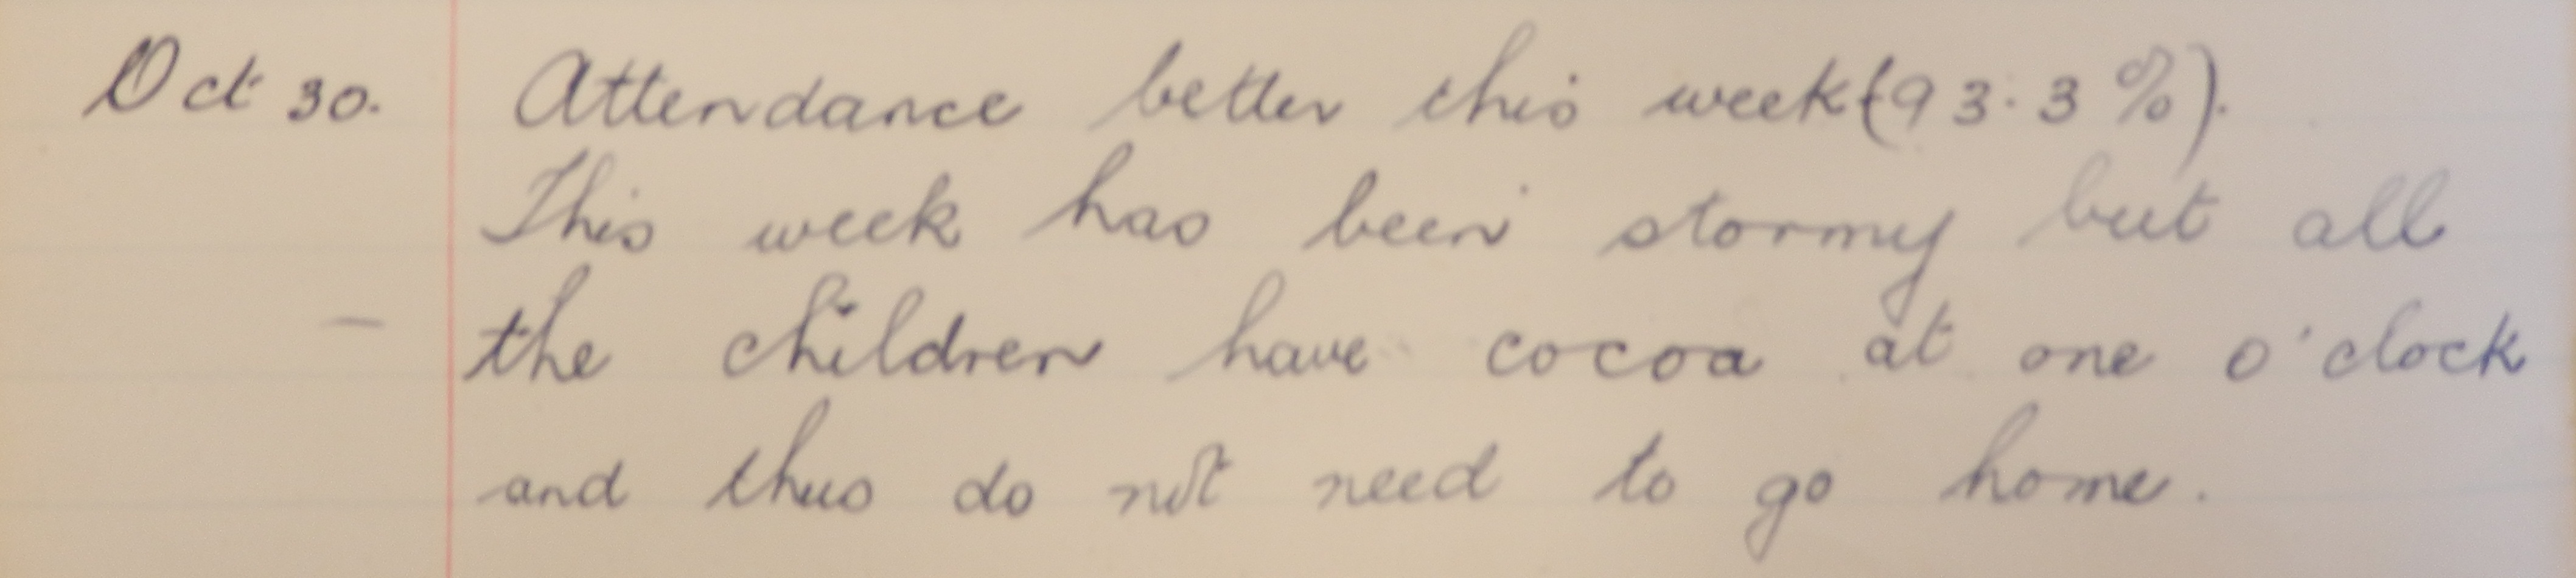 Oct 30. Attendance better this week (93.3%).
This week has been stormy but all
the children have cocoa at one o'clock
and thus do not need to go home.